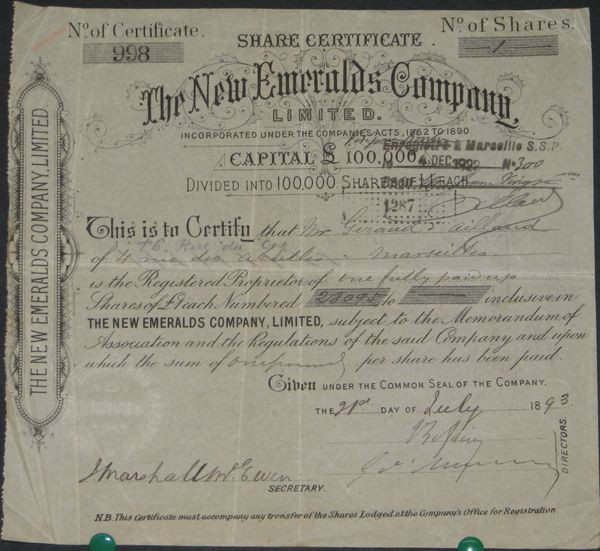 No. of Certificate. No. of Shares.
998 1
SHARE CERTIFICATE.
The New Emeralds Company,
LIMITED.
INCORPORATED UNDER THE COMPANIES ACTS, 1862 TO 1890
CAPITAL £ 100,000
Enregistré à Marseille S.S.P.
4 DEC 1922 No. 300
DIVIDED INTO 100,000 SHARES OF £1 EACH
1287
This is to Certify that Mr Giraud Gaillard
of 4 rue Marseilles
is the Registered Proprietor of one fully paid up
Shares of £1 each Numbered 28095 to inclusive in
THE NEW EMERALDS COMPANY, LIMITED, subject to the Memorandum of
Association and the Regulations of the said Company and upon
which the sum of one pound per share has been paid.
Given UNDER THE COMMON SEAL OF THE COMPANY.
THE 21st DAY OF July 1893.
DIRECTORS.
J. Marshall McEwen
SECRETARY.
N.B. This Certificate must accompany any transfer of the Shares Lodged at the Company's Office for Registration
THE NEW EMERALDS COMPANY, LIMITED